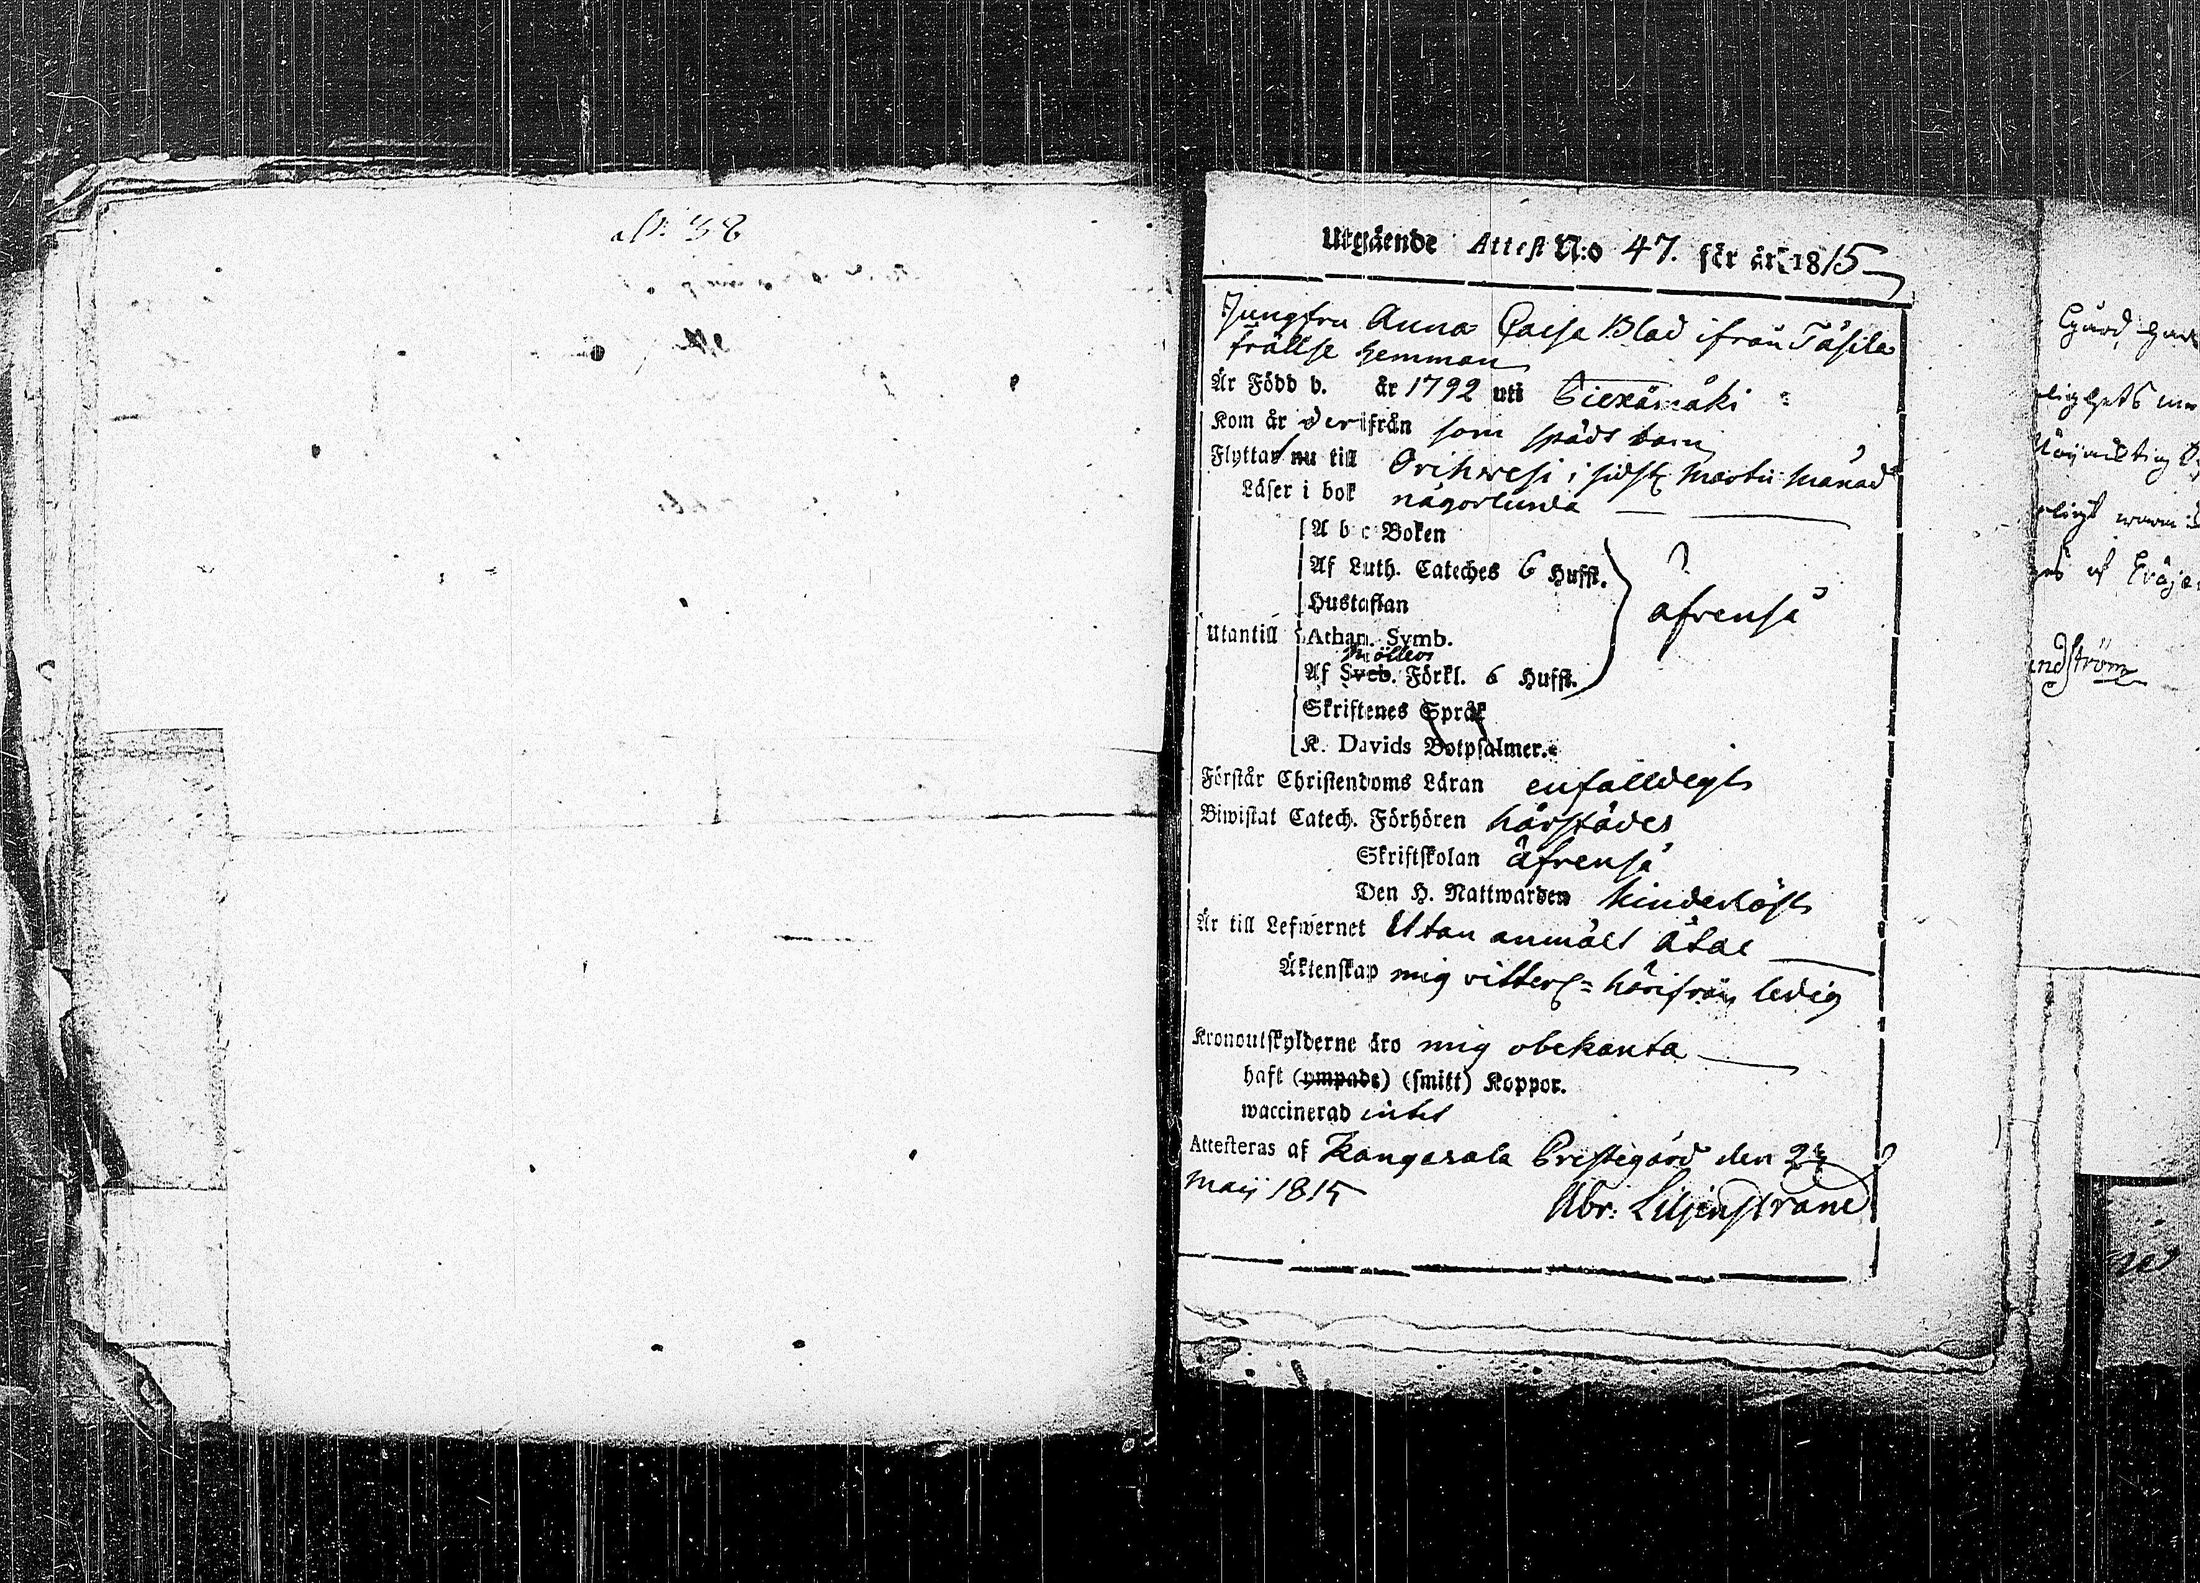 38
Utgående Attest N:o 47. för år 1815
Jungfru Anna Caisa Blad ifrån Täsila
frällse hemman
Är Född d. år 1792 uti Piexämäki
Kom år derifrån som späd barn
Flyttar nu till Orihwesi i sidstl Martii Månad
Läser i bok någorlunda
A b c Boken
Af Luth. Cateches 6 Hufst.
Hustaflan
afrenså
Utantill Athan. Symb.
Möllers
Af Sveb. Förkl. 6 Hufst.
Skriftenes Språk
K. Davids Botpsalmer.
Förstår Christendoms Läran enfalldegt
Biwistat Catech. Förhören härstädes
Skriftskolan äfrenså
Den H. Nattwarden hinderlöst
Är till Lefwernet Utan anmält åtal
Äktenskap mig vitterl= härifrån ledig
Kronoutskylderne äro mig obekanta
haft (ympade) (smitt) Koppor.
waccinerad intet
Attesteras af Kangasala Prestegård den 23
Maij 1815
Abr: Liljenstrand